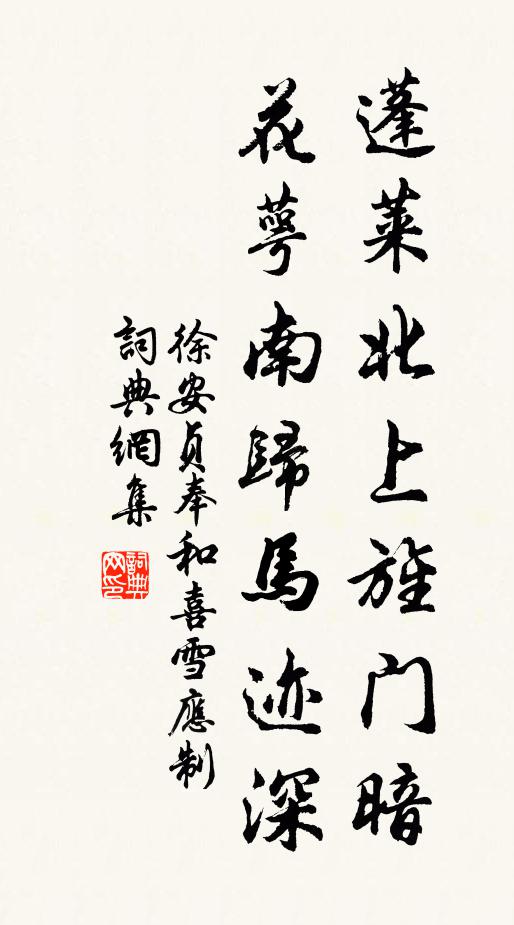 蓬萊北上旌门暗
花萼南歸馬迹深
徐安貞奉和喜雪應制
詞典網集
詞典网印